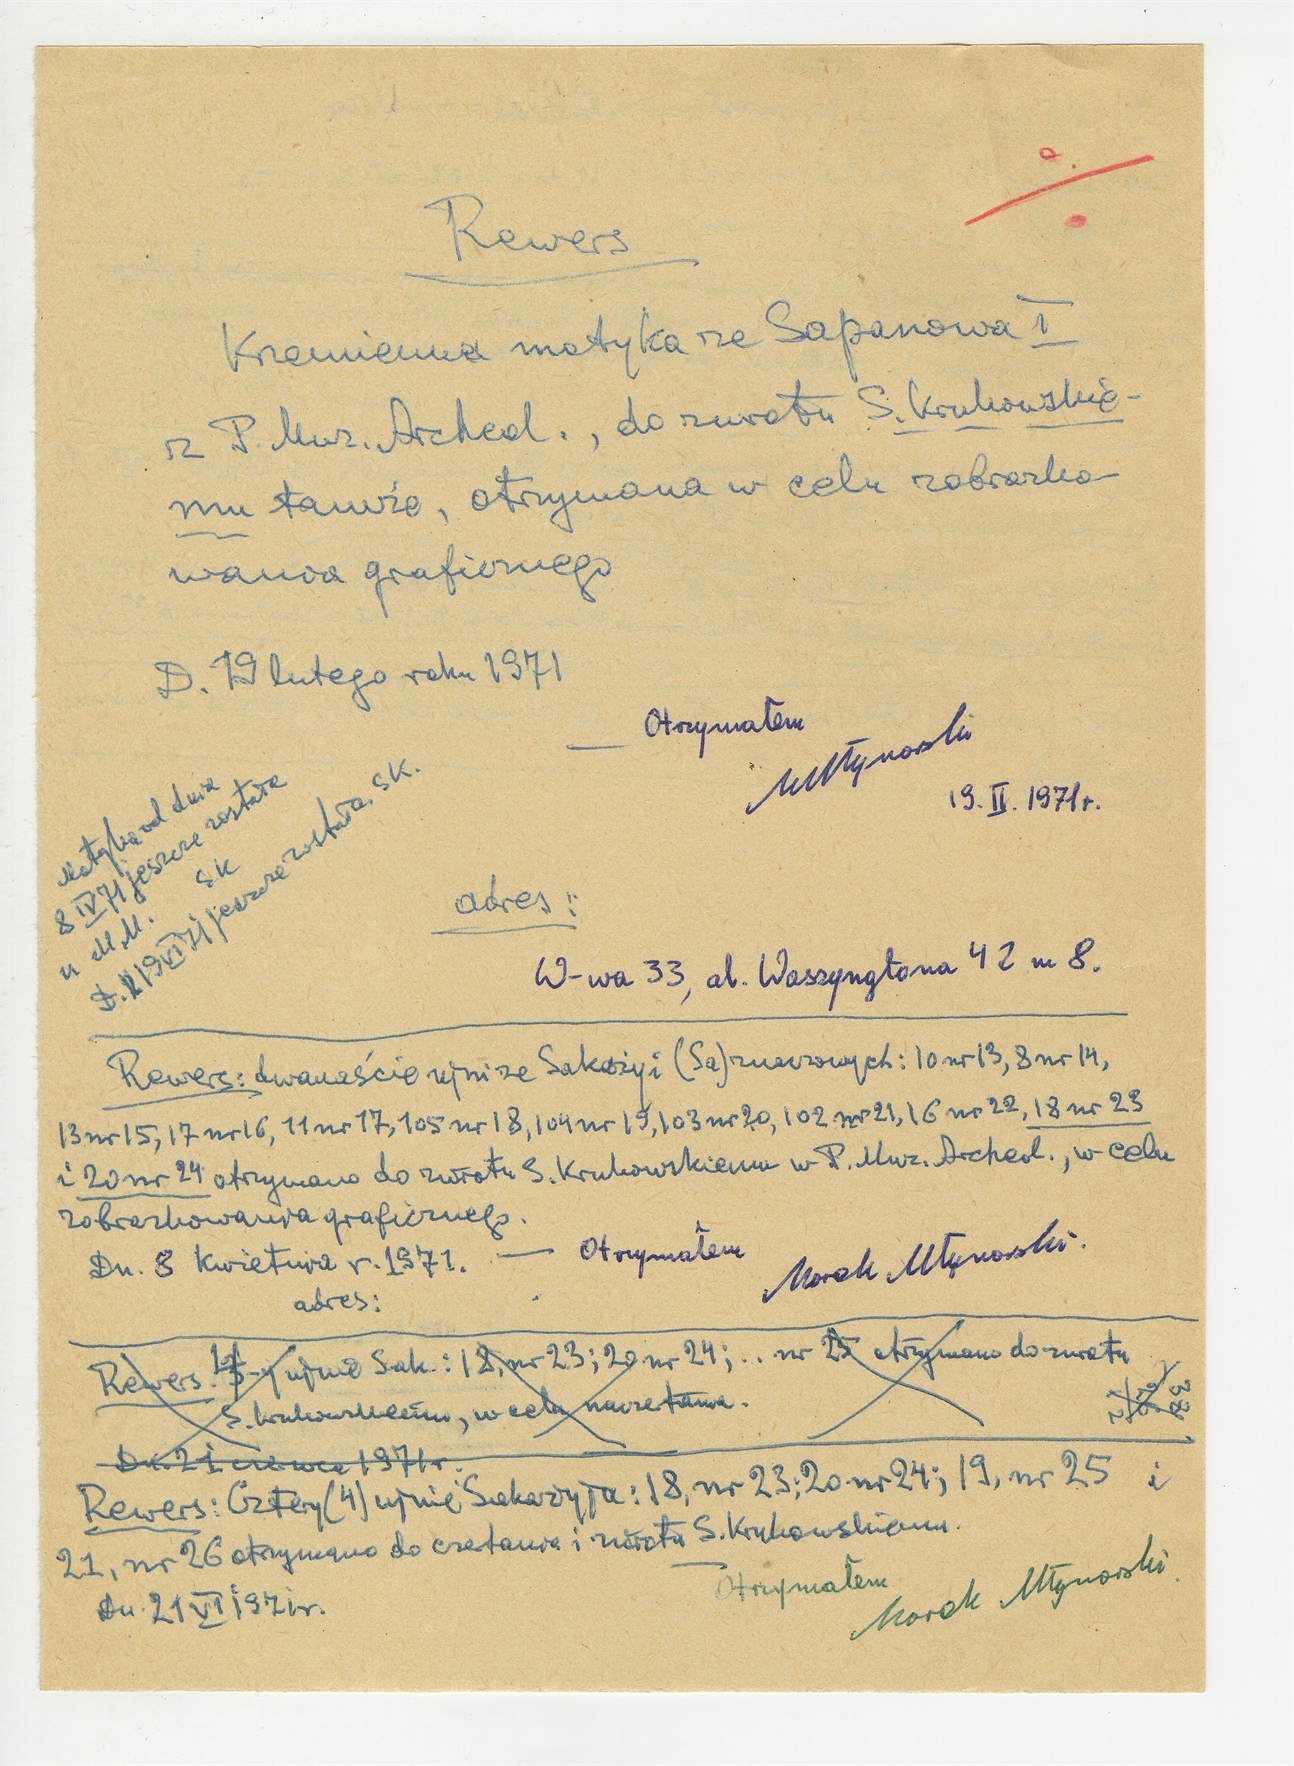 Rewers
Krzemienna motyka ze Sapanowa I
z P. Muz. Archeol., do zwrotu S. Krukowskie-
mu tamże, otrzymana w celu zobrazko-
wania graficznego
D. 19 lutego roku 1971
Otrzymałem
MMłynarski
19. II. 1971r.
Motyka od dnia
8 IV 71 jeszcze została
u M.M. SK
D. 19 VI 71 jeszcze została. SK.
adres:
W-wa 33, al. Waszyngtona 42 m 8.
Rewers: dwanaście ujni ze Sakażyi (Sa) znaczonych: 10 nr 13, 8 nr 14,
13 nr 15, 17 nr 16, 11 nr 17, 105 nr 18, 104 nr 19, 103 nr 20, 102 nr 21, 16 nr 22, 18 nr 23
i 20 nr 24 otrzymano do zwrotu S. Krukowskiemu w P. Muz. Archeol., w celu
zobrazkowania graficznego.
Dn. 8 kwietnia r. 1971. — Otrzymałem
Marek Młynarski.
adres:
Rewers: ujnie Sak.: 18, nr 23; 20 nr 24; .. nr 25 otrzymano do zwrotu
S. Krukowskiemu, w celu
Dn. 21 czerwca 1971r.
Rewers: Cztery (4) ujnie Sakażyja: 18, nr 23; 20 nr 24; 19, nr 25 i
21, nr 26 otrzymano do czetania i zwrotu S. Krukowskiemu.
Dn. 21 VI 1971r.
Otrzymałem
Marek Młynarski.